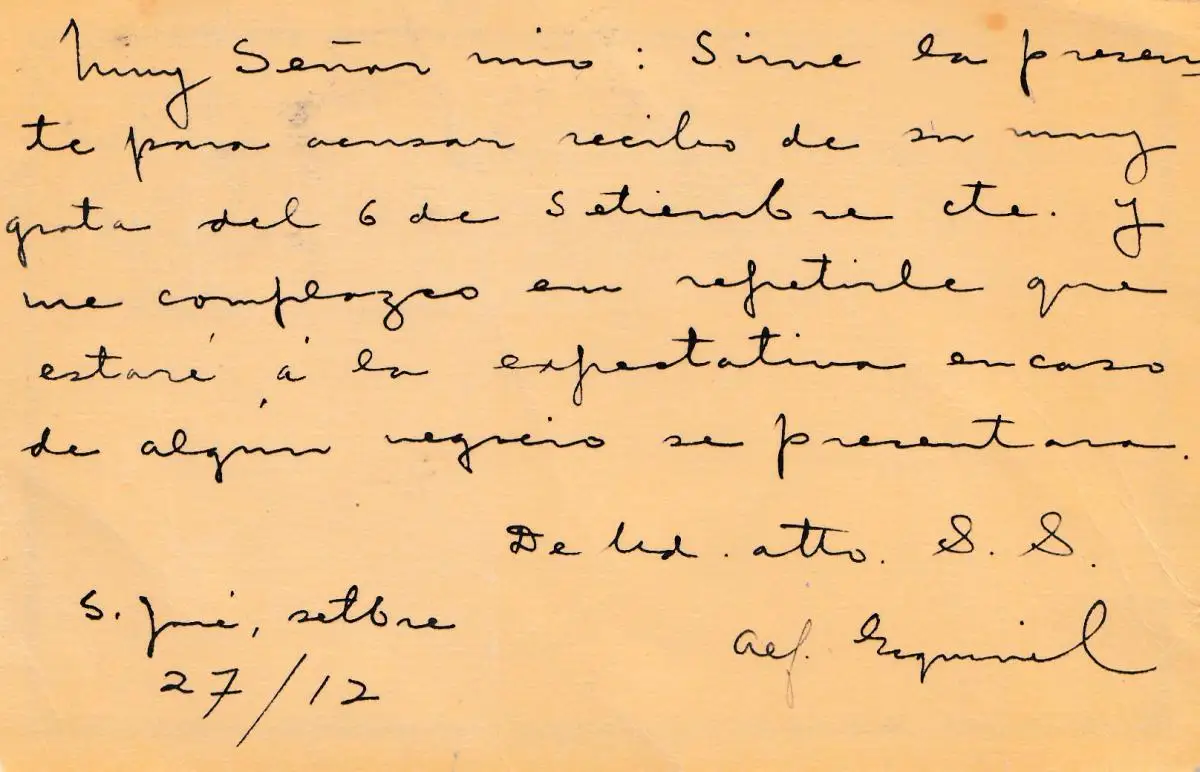 Muy Señor mio: Sirve la presen-
te para acusar recibo de su muy
grata del 6 de Setiembre cte. y
me complazco en repetirle que
estaré á la expectativa en caso
de algún negocio se presentara.
De Ud. atto. S. S.
S. José, setbre
27/12
Alf. Esquivel